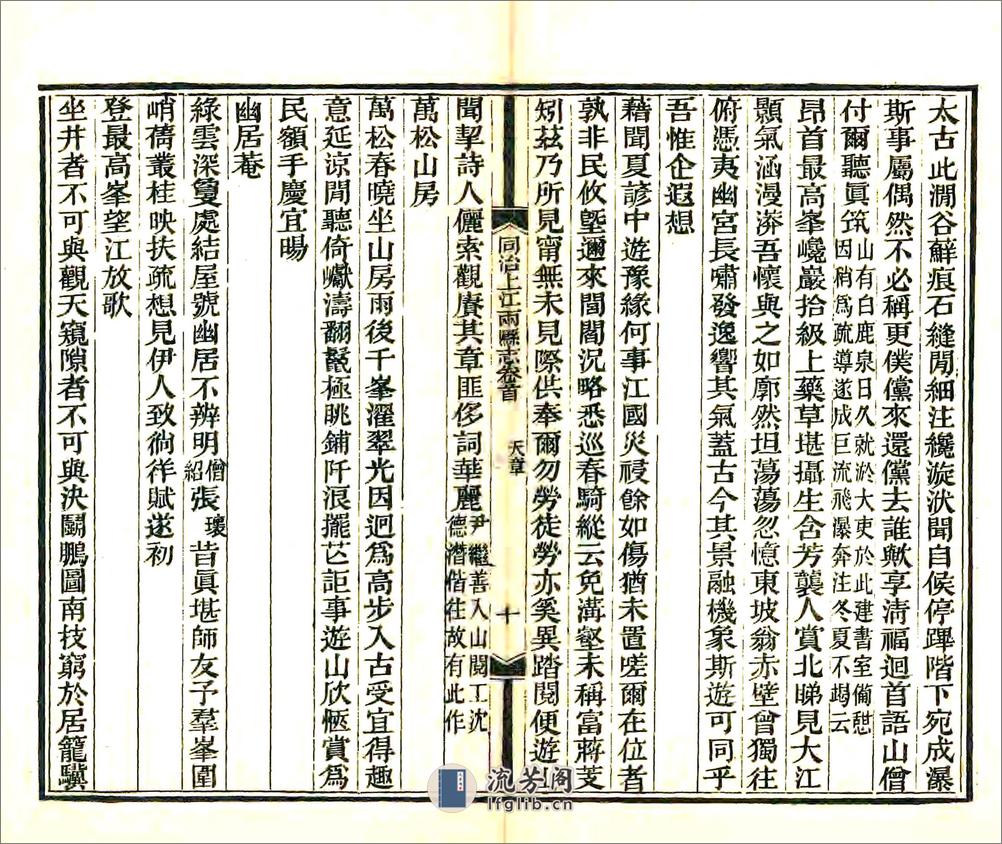 太古此澗谷蘚痕石縫閒細注纔漩洑聞自候停蹕階下宛成瀑
斯事屬偶然不必稱更僕儻來還儻去誰歟享清福迴首語山僧
付爾聽眞筑山有白鹿泉日久就淤大吏於此建書室備憇因稍爲疏導遂成巨流飛瀑奔注冬夏不竭云
昂首最高峯巉巖拾級上藥草堪攝生含芳襲人賞北睇見大江
顥氣涵漫漭吾懷與之如廓然坦蕩蕩忽憶東坡翁赤壁曾獨往
俯憑夷幽宮長嘯發逸響其氣蓋古今其景融機象斯遊可同乎
吾惟企遐想
藉聞夏諺中遊豫緣何事江國災祲餘如傷猶未置嗟爾在位者
孰非民攸墍邇來閭閻況略悉巡春騎縱云免溝壑未稱富蔣芰
矧茲乃所見甯無未見際供奉爾勿勞徒勞亦奚異踏閱便遊一
同治上江兩縣志卷首
天章
十
聞挈詩人儷索觀賡其章匪侈詞華麗尹繼善入山閱工沈德潛偕往故有此作
萬松山房
萬松春曉坐山房雨後千峯濯翠光因迥爲高步入古受宜得趣
意延涼閒聽倚巘濤翻鬣極眺鋪阡浪擺芒詎事遊山欣愜賞爲
民額手慶宜暘
幽居菴
綠雲深敻處結屋號幽居不辨明僧紹張瓌昔眞堪師友予羣峯圍
峭蒨叢桂映扶疏想見伊人致徜徉賦遂初
登最高峯望江放歌
坐井者不可與觀天窺隙者不可與決鬭鵬圖南技窮於居籠驥
流芳阁
lfglib.cn